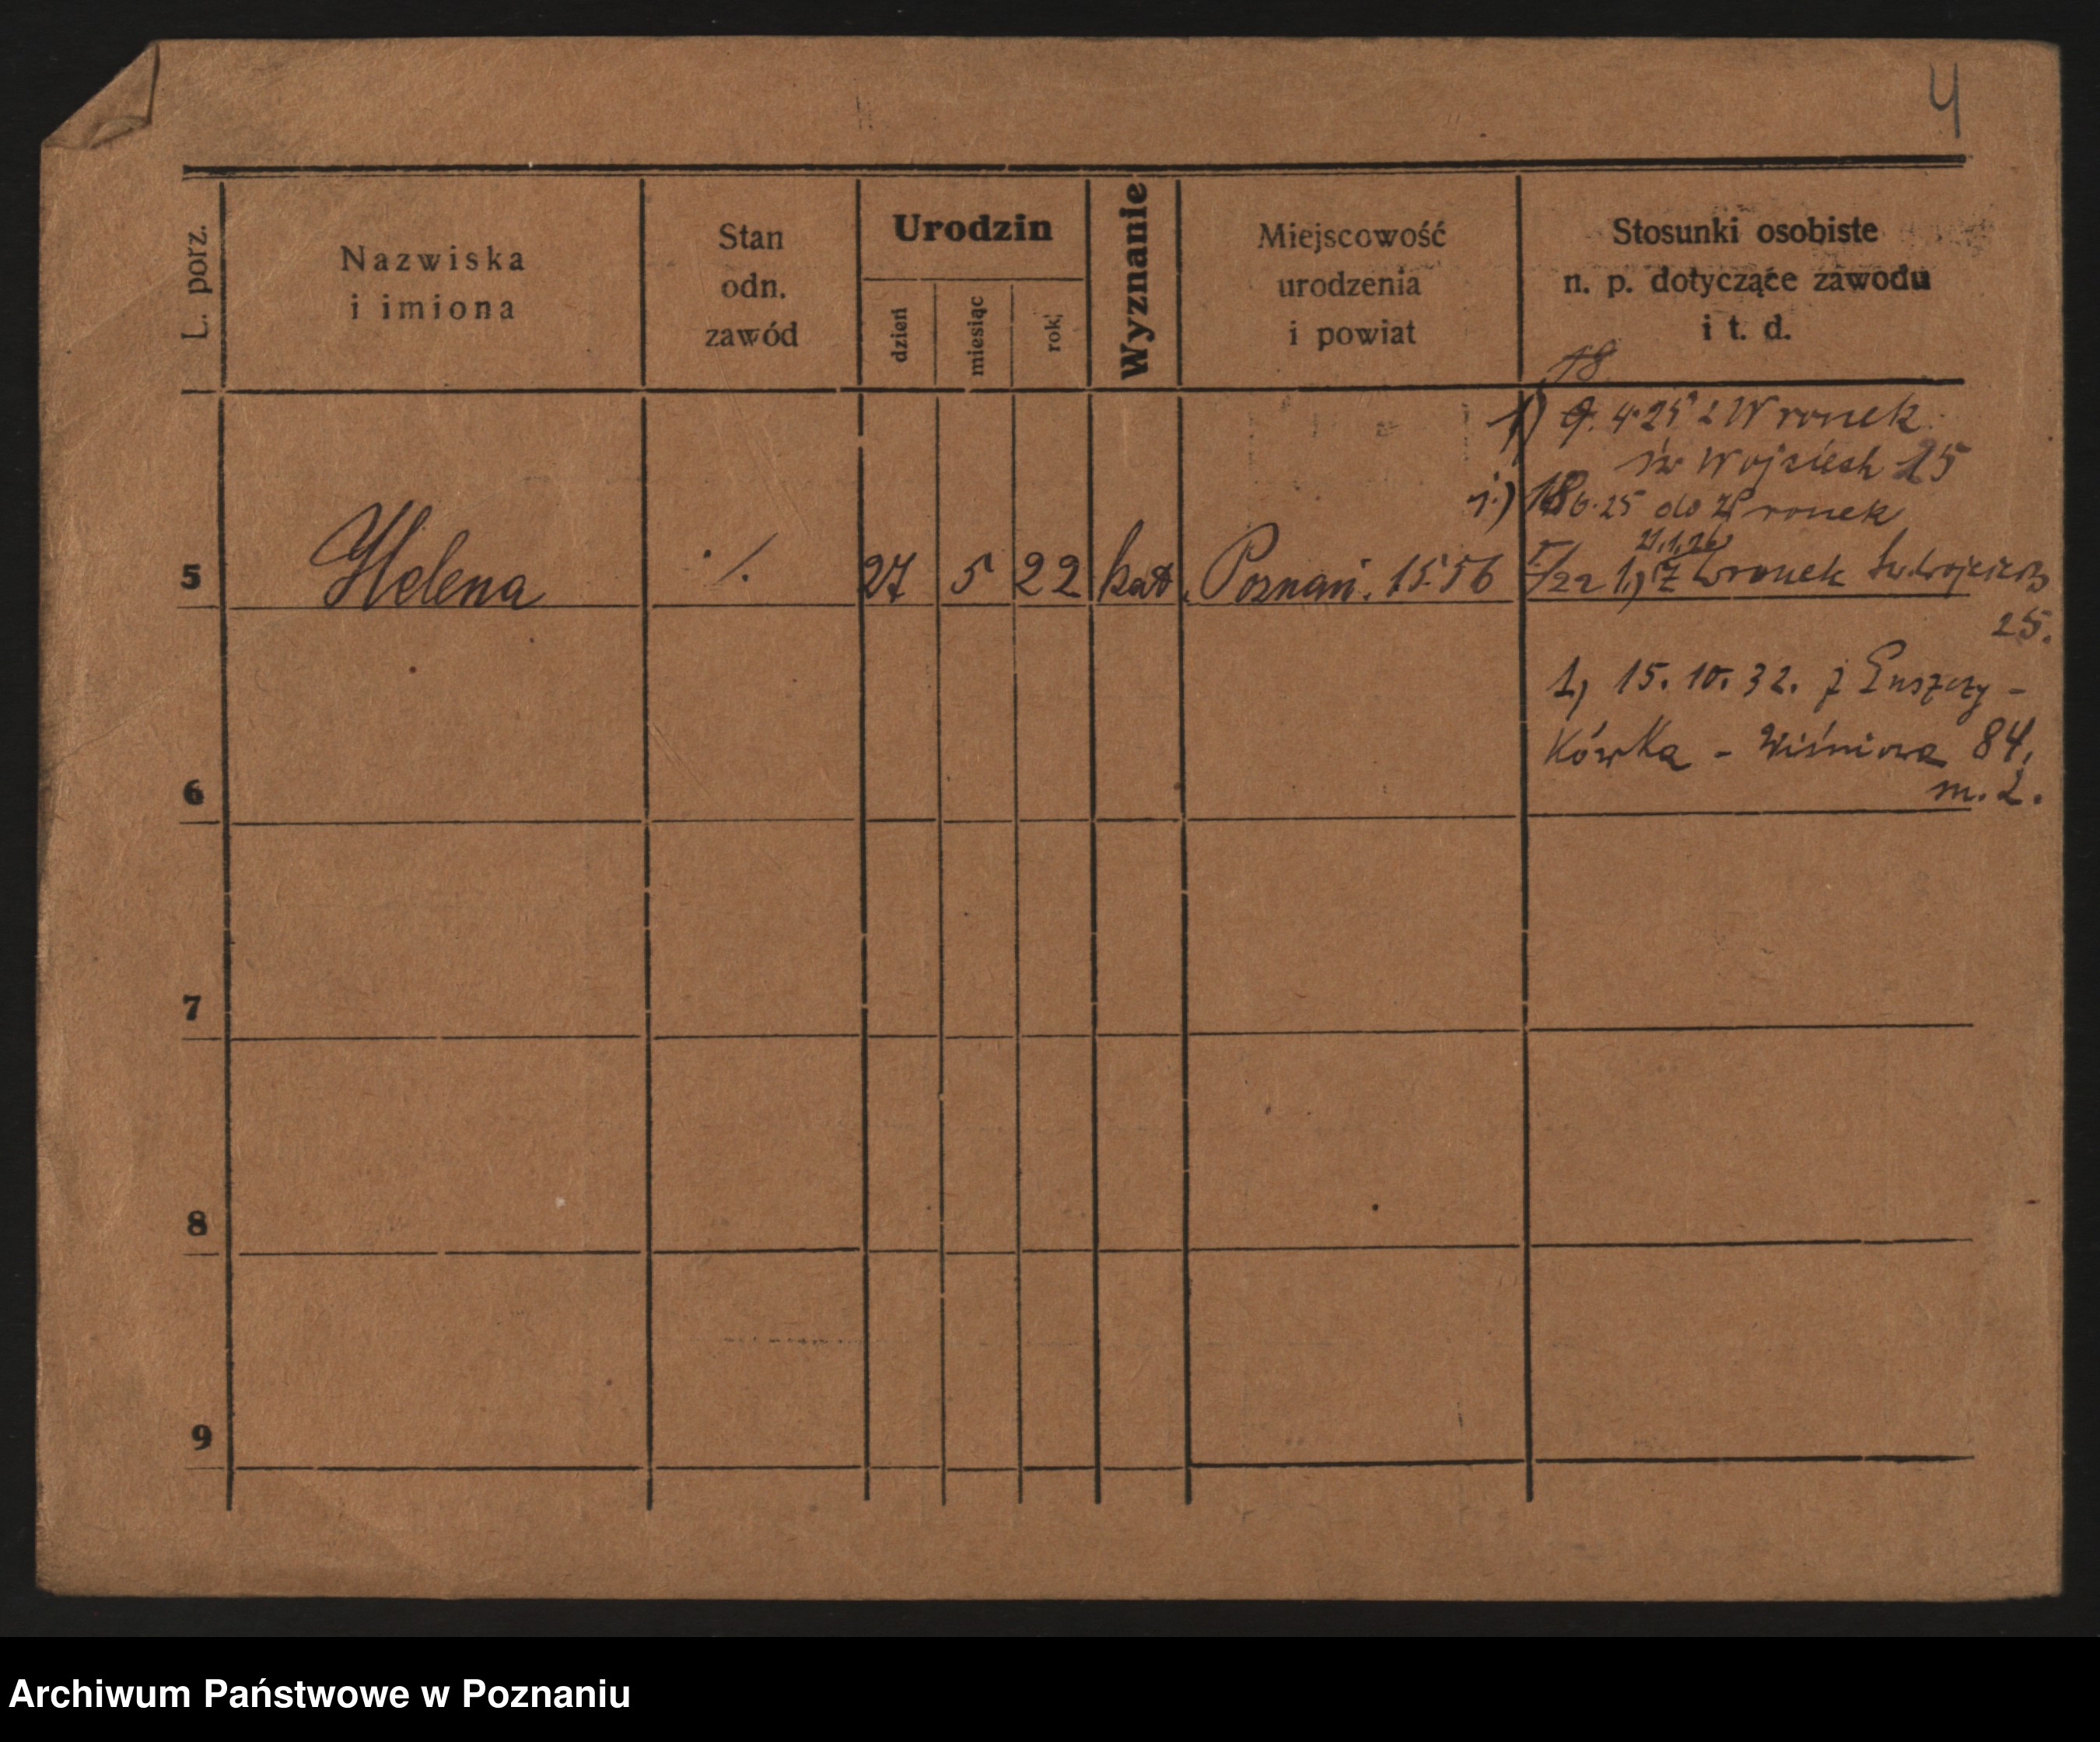 4
L. porz.
Nazwiska
i imiona
Stan
odn.
zawód
Urodzin
dzień
miesiąc
rok
Wyznanie
Miejscowość
urodzenia
i powiat
Stosunki osobiste
n. p. dotyczące zawodu
i t. d.
18
1) 9. 4. 25 z Wronek
św Wojciech 25
1.) 18 6. 25 do Wronek
21.1.26
5 Helena ./. 27 5 22 kat. Poznań. 1556 I/22 1,) z Wronek św. Wojciech
25.
1, 15. 10. 32. z Puszczy-
kówka - Wiśniowa 84,
6 m. 2.
7
8
9
Archiwum Państwowe w Poznaniu